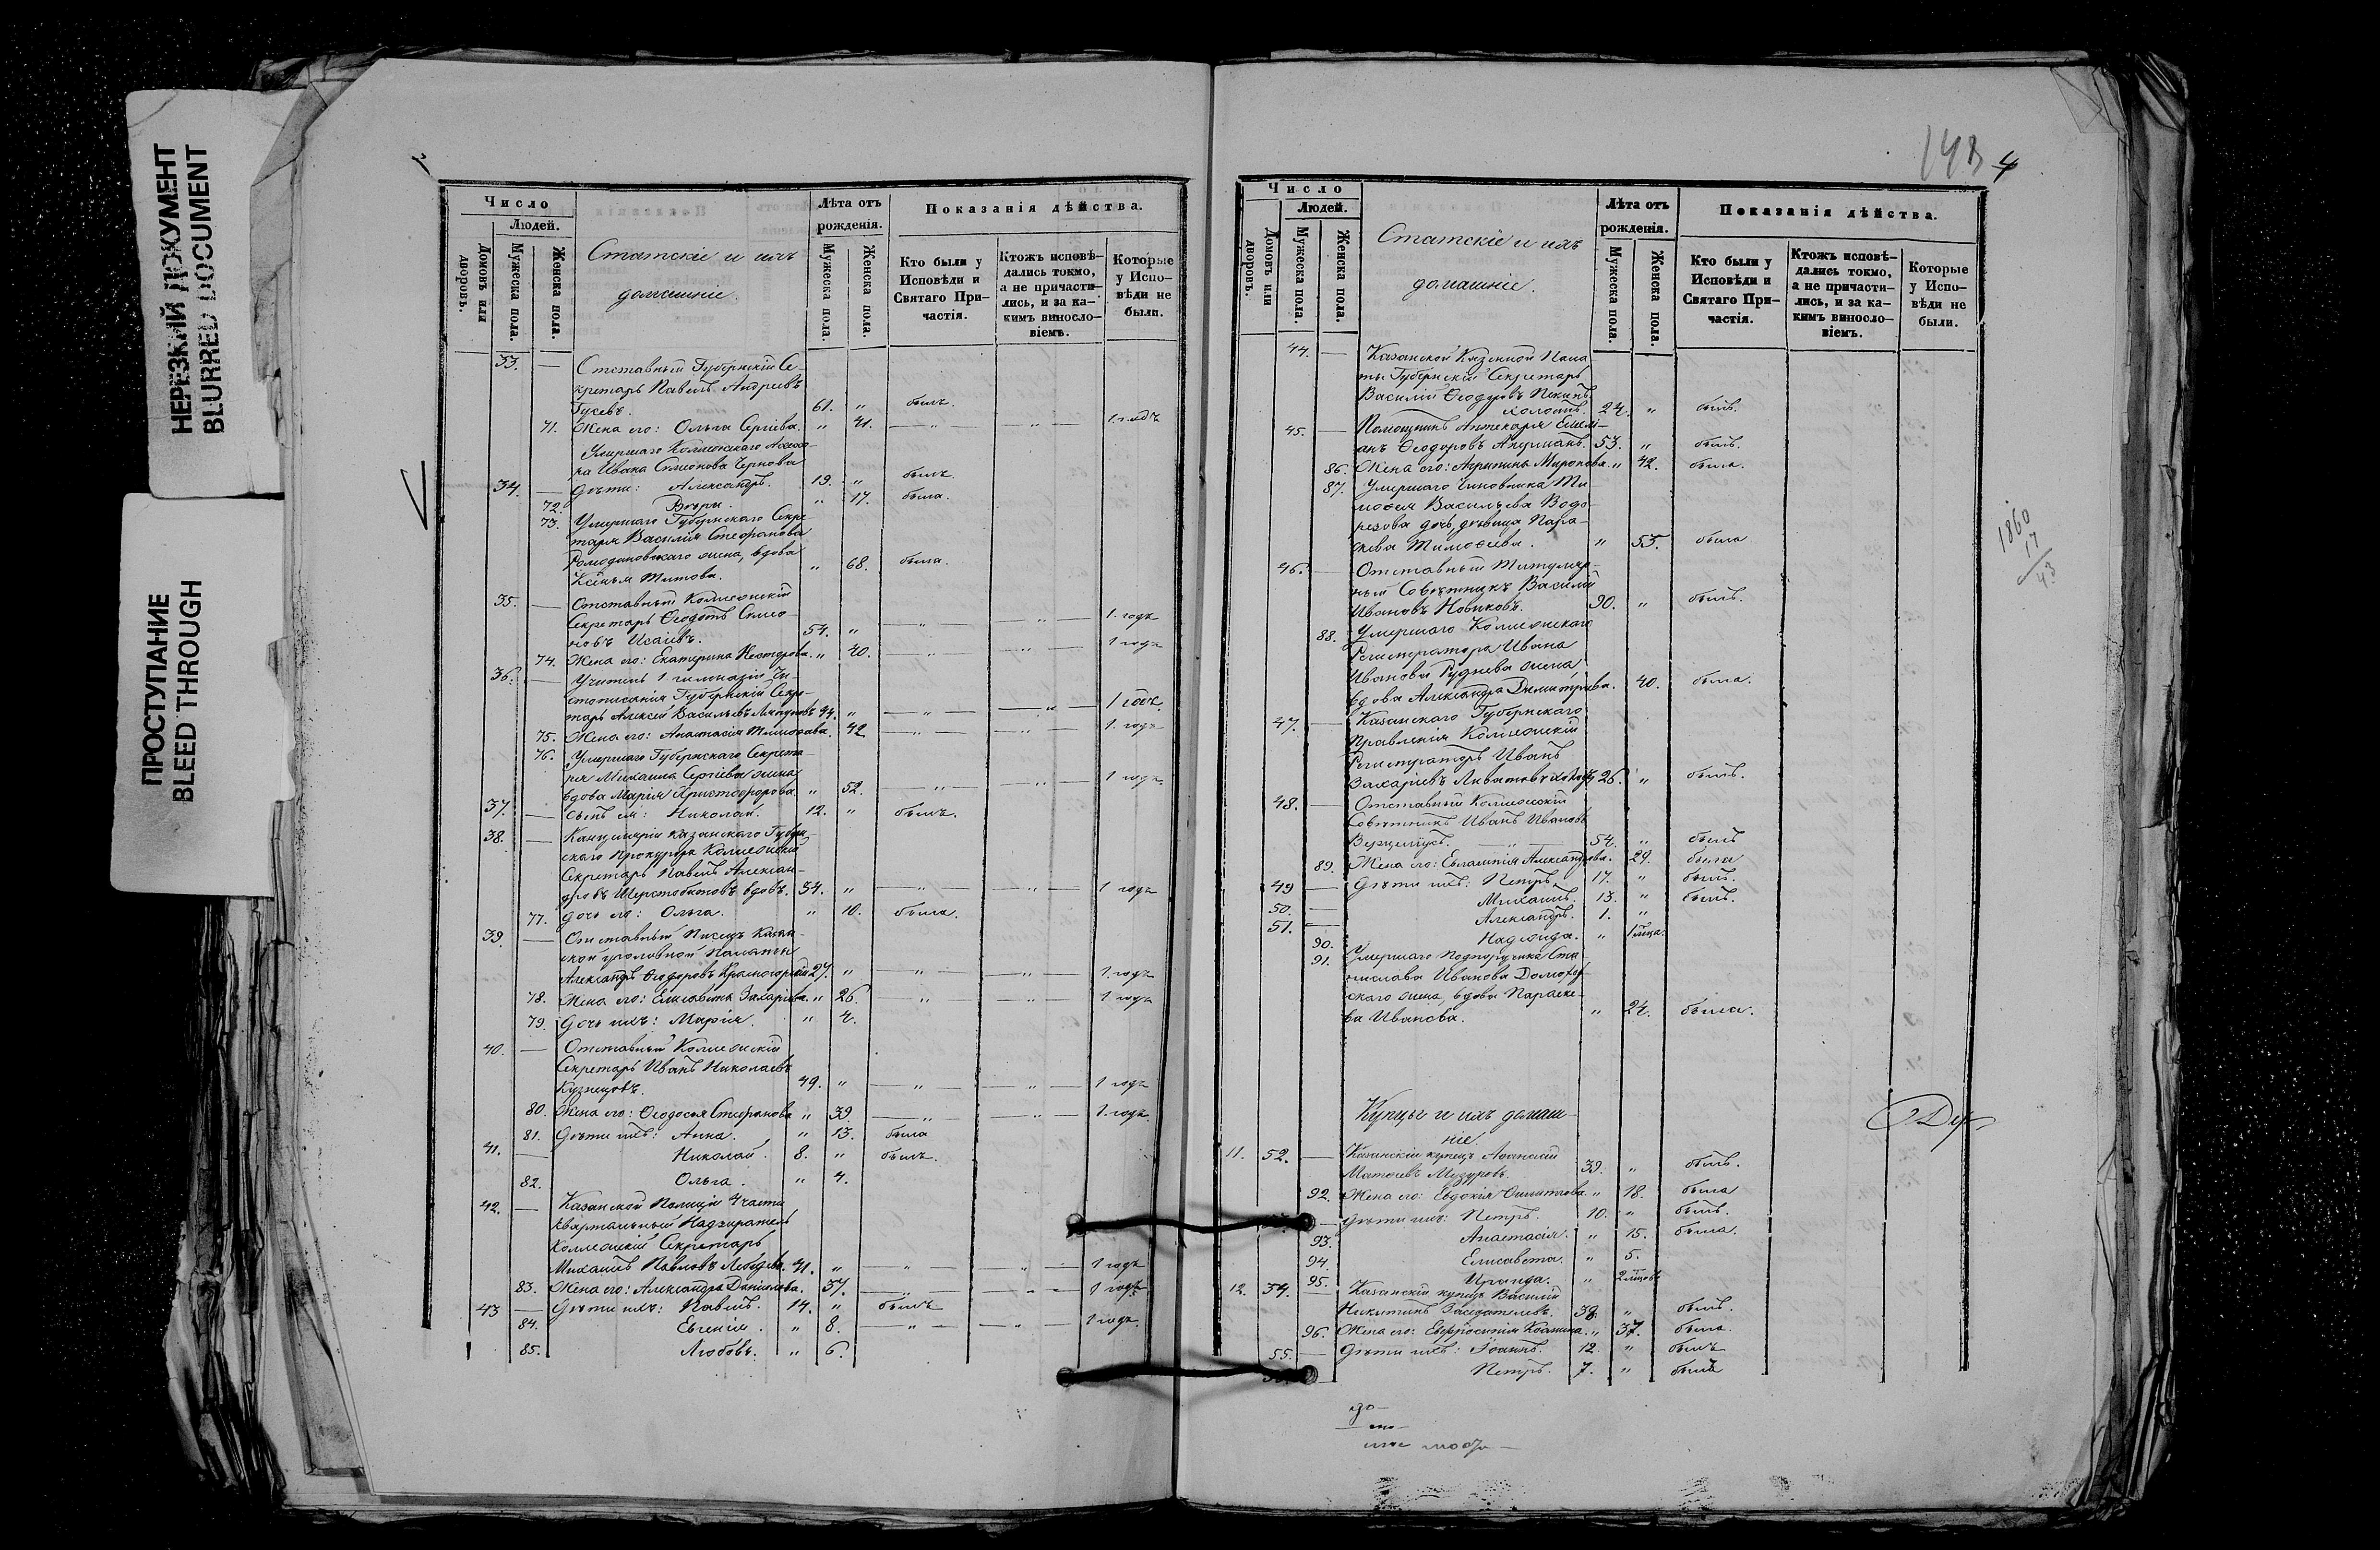 НЕРЕЗКИЙ ДОКУМЕНТ
BLURRED DOCUMENT
ПРОСТУПАНИЕ
BLEED THROUGH
Число
Людей.
Домовъ или дворовъ.
Мужеска пола.
Женска пола.
Статскіе и ихъ
домашніе.
Лѣта отъ рожденія.
Мужеска пола.
Женска пола.
Показанія дѣйства.
Кто были у Исповѣди и Святаго Причастія.
Ктожъ исповѣдались токмо, а не причастились, и за какимъ винословіемъ.
Которые у Исповѣди не были.
33. — Отставный Губернскій Се-
кретарь Павелъ Андреевъ
Гусевъ. 61. „ былъ.
71. Жена его: Ольга Сергіева. „ 41. — „ — „ — 1 годъ
Умершаго Коллежскаго Ассесо-
ра Ивана Симеонова Чернова
34. — дѣти: Александръ. 19. „ былъ.
72. Вѣра. „ 17. была.
73. Умершаго Губернскаго Секре-
таря Василія Стефанова
Ромодановскаго жена, вдова
Ксенія Титова. „ 68. была.
35. — Отставный Коллежскій
Секретарь Ѳеодотъ Симео-
новъ Исаіевъ. 54. „ — „ — „ — 1 годъ
74. Жена его: Екатерина Нестерова. „ 40. — „ — „ — 1 годъ
36. — Учитель 1 гимназіи Чи-
стописанія, Губернскій Секре-
тарь Алексей Васильевъ 44. „ — „ — „ — 1 годъ.
75. Жена его: Анастасія Тимоѳеева. 42 — „ — „ — 1 годъ
76. Умершаго Губернскаго Секрета-
ря Михаила Сергіева жена
вдова Марія Христофорова. „ 52. — „ — „ — 1 годъ
37. — Сынъ ея: Николай. 12. „ былъ.
38. — Канцеляріи Казанскаго Губерн-
скаго Прокурора Коллежскій
Секретарь Павелъ Алексан-
дровъ Шерстобитовъ вдовъ. 34. „ — „ — „ — 1 годъ
77. дочь его: Ольга. „ 10. была.
39. — Отставный Писецъ Казан-
ской уголовной Палаты
Александръ Ѳеодоровъ 27. „ — „ — „ — 1 годъ
78. Жена его: Елисавета Захаріева. „ 26. „ „ 1 годъ
79. Дочь ихъ: Марія. „ 4.
40. — Отставный Коллежскій
Секретарь Иванъ Николаевъ
Кузнецовъ. 49. „ — „ — „ — 1 годъ
80. Жена его: Ѳеодосія Стефанова „ 39 — „ — „ — 1 годъ.
81. Дѣти ихъ: Анна. „ 13. была
41. — Николай. 8. „ былъ.
82. Ольга. „ 4.
42. — Казанской Полиціи 4 части
квартальный Надзиратель
Коллежскій Секретарь
Михаилъ Павловъ Лебедевъ. 41. „ — „ — „ — 1 годъ
83. Жена его: Александра Даніилова. 37. — „ — „ — 1 годъ.
43 — Дѣти ихъ: Павелъ. 14. „ былъ
84. Евгенія. „ 8. — „ — „ — 1 годъ.
85. Любовь. „ 6.
4
Число
Людей.
Домовъ или дворовъ.
Мужеска пола.
Женска пола.
Статскіе и ихъ
домашніе.
Лѣта отъ рожденія.
Мужеска пола.
Женска пола.
Показанія дѣйства.
Кто были у Исповѣди и Святаго Причастія.
Ктожъ исповѣдались токмо, а не причастились, и за какимъ винословіемъ.
Которые у Исповѣди не были.
44. — Казанской Казенной Пала-
ты Губернскій Секретарь
Василій Ѳеодоровъ
холостъ. 24. „ былъ.
45. — Помощникъ Аптекаря Емели-
анъ Ѳеодоровъ 53. „ былъ.
86. Жена его: Агрипина Миронова. „ 42. была.
87. Умершаго Чиновника Ти-
моѳея Васильева Водо-
резова дочь, дѣвица Пара-
скева Тимоѳеева. „ 55. была
46. — Отставный Титуляр-
ный Совѣтникъ Василій
Ивановъ Новиковъ. 90. „ былъ.
88. Умершаго Коллежскаго
Регистратора Ивана
Иванова Руднева жена
вдова Александра Димитріева. 40. была.
47. — Казанскаго Губернскаго
Правленія Коллежскій
Регистраторъ Иванъ
Захаріевъ 26. „ былъ.
48. — Отставный Коллежскій
Совѣтникъ Иванъ Ивановъ
54. „ былъ
89. Жена его: Евлампія Александрова. 29. была
49 — Дѣти ихъ: Петръ. 17. „ былъ.
50. — Михаилъ. 13. „ былъ.
51. — Александръ. 1. „
90. Надежда. „ 1 мѣсяца.
91. Умершаго Подпоручика Ста-
нислава Иванова
жена, вдова Параске-
ва Иванова. „ 24. была.
1860
17
43
Купцы и ихъ домаш-
ніе.
11. 52. — Казанскій купецъ Аѳанасій
Матѳеевъ Мозуровъ. 39. „ былъ.
92. Жена его: Евдокія Филиппова „ 18. была
— Дѣти ихъ: Петръ. 10. „ былъ.
93. Анастасія. „ 15. была.
94. Елисавета. „ 5.
95. Ираида. „ 2 мѣсяц.
12. 54. — Казанскій купецъ Василій
Никитинъ Заседателевъ. 38. „ былъ.
96. Жена его: Евфросинія Козмина. „ 37. была.
55. — Дѣти ихъ: Іоаннъ. 12. „ былъ
Петръ. 7. „ былъ